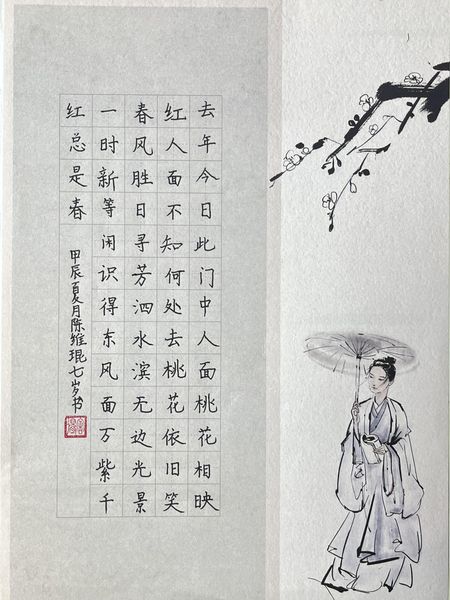 去年今日此门中人面桃花相映
红人面不知何处去桃花依旧笑
春风胜日寻芳泗水滨无边光景
一时新等闲识得东风面万紫千
红总是春
甲辰夏月陈维琨七岁书